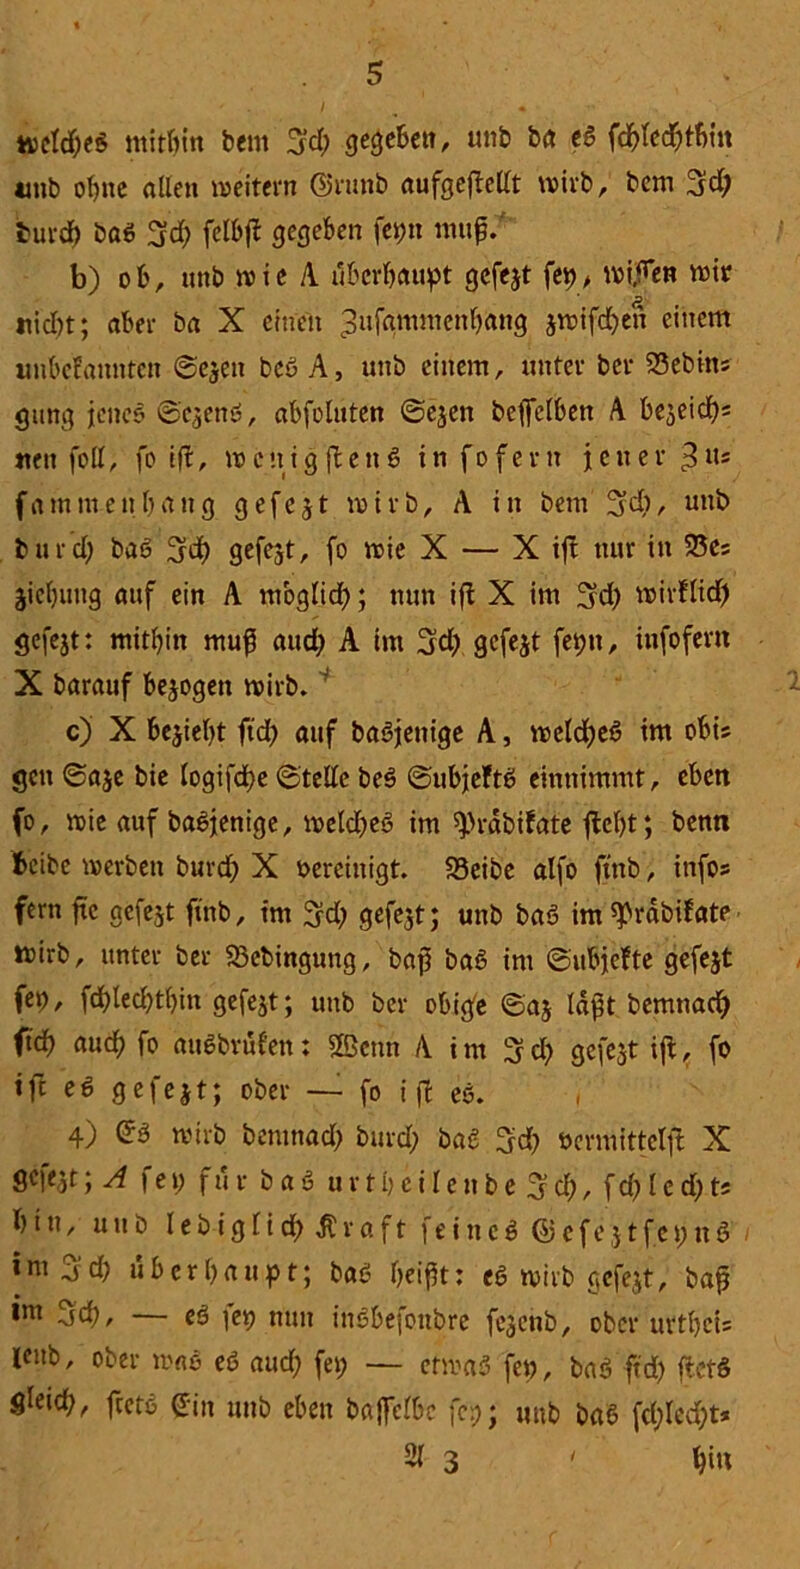 5
welches mithin dem Ich gegeben, und da es schlechthin
und ohne allen weitern Grund aufgestellt wird, dem Ich
durch das Ich selbst gegeben seyn muß.
b) ob, und wie A überhaupt gesezt sey, wissen wir
nicht; aber da X einen Zusammenhang zwischen einem
unbekannten Sezen des A, und einem, unter der Bedin-
gung jenes Sezens, absoluten Sezen desselben A bezeich-
nen soll, so ist, wenigstens in sofern jener Zu-
sammenhang gesezt wird, A in dem Ich, und
durch das Ich gesezt, so wie X — X ist nur in Be-
ziehung auf ein A möglich; nun ist X im Ich wirklich
gesezt: mithin muß auch A im Ich gesezt seyn, insofern
X darauf bezogen wird.
c) X bezieht sich auf dasjenige A, welches im obi-
gen Saze die logische Stelle des Subjekts einnimmt, eben
so, wie auf dasjenige, welches im Prädikate steht; denn
beide werden durch X vereinigt. Beide also sind, inso-
fern sie gesezt sind, im Ich gesezt; und das im Prädikate
wird, unter der Bedingung, daß das im Subjekte gesezt
sey, schlechthin gesezt; und der obige Saz läßt demnach
sich auch so ausdrüken: Wenn A im Ich gesezt ist, so
ist es gesezt; oder — so ist es.
4) Es wird demnach durch das Ich vermittelst X
gesezt; A sey für das urtheilende Ich, schlecht-
hin, und lediglich Kraft seines Geseztseyns
im Ich überhaupt; das heißt: es wird gesezt, daß
im Ich, — es sey nun insbesondre sezend, oder urthei-
lend, oder was es auch sey — etwas sey, das sich stets
gleich, stets Ein und eben dasselbe sey; und das schlecht-
A 3 hin